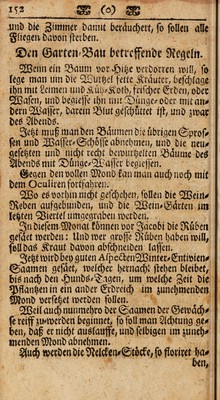 152 (o)
und die Zimmer damit beräuchert, so sollen alle
Fliegen davon sterben.
Den Garten-Bau betreffende Regeln.
Wenn ein Baum vor Hitze verdorren will, so
lege man um die Wurtzel fette Kräuter, beschlage
ihn mit Leimen und Küh-Koth, frischer Erden, oder
Wasen, und begiesse ihn mit Dünge- oder mit an-
dern Wasser, darein Blut geschüttet ist, und zwar
des Abends.
Jetzt muß man den Bäumen die übrigen Spros-
sen und Wasser-Schösse abnehmen, und die neu-
gesetzten und nicht recht bewurtzelten Bäume des
Abends mit Dünge-Wasser begiessen.
Gegen den vollen Mond kan man auch noch mit
dem Oculiren fortfahren.
Wo es vorhin nicht geschehen, sollen die Wein-
Reben aufgebunden, und die Wein-Gärten im
letzten Viertel umgegraben werden.
In diesem Monat können vor Jacobi die Rüben
gesäet werden: Und wer grosse Rüben haben will,
soll das Kraut davon abschneiden lassen.
Jetzt wird bey guten Aspecten Winter-Entivien-
Saamen gesäet, welcher hernach stehen bleibet,
bis nach den Hunds-Tägen, um welche Zeit die
Pflantzen in ein ander Erdreich im zunehmenden
Mond versetzet werden sollen.
Weil auch nunmehro der Saamen der Gewäch-
se reiff zu werden beginnet, so soll man Achtung ge-
ben, daß er nicht auslauffe, und selbigen im zuneh-
menden Mond abnehmen.
Auch werden die Nelcken-Stöcke, so floriret ha-
ben,